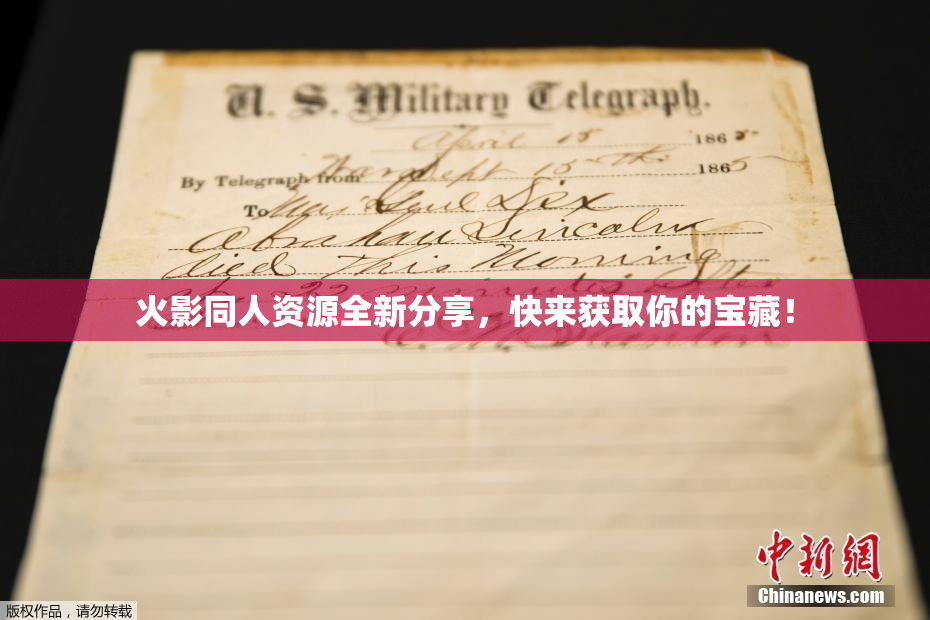 U. S. Military Telegraph.
April 15 1865
By Telegraph from War Dept 15th 1865
To Maj Genl Dix
Abraham Lincoln
died This Morning
22 minutes after
火影同人资源全新分享，快来获取你的宝藏！
E. M. Stanton
中新网
Chinanews.com
版权作品，请勿转载